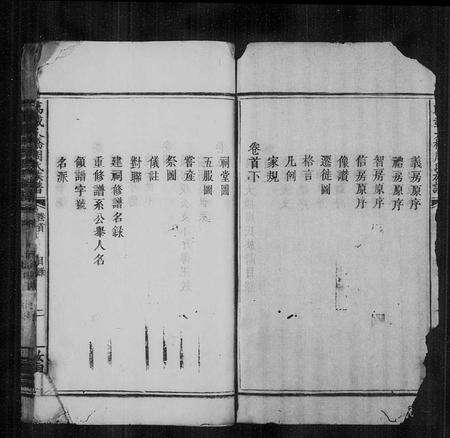 義房原序
禮房原序
智房原序
信房原序
像讚
遷徙圖
格言
凡例
家規
卷首下
祠堂圖
五服圖
嘗產
祭圖
儀註
對聯
建祠修譜名錄
重修譜系公舉人名
領譜字號
名派